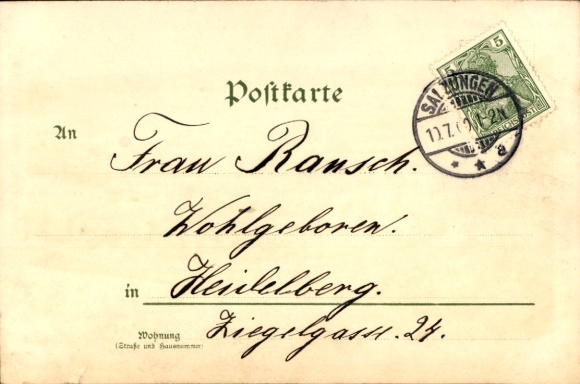 Postkarte
5
5
SALZUNGEN
1-2N
a
An Frau Rausch.
Wohlgeboren.
in Heidelberg.
Wohnung
(Straße und Hausnummer)
Ziegelgasse. 24.